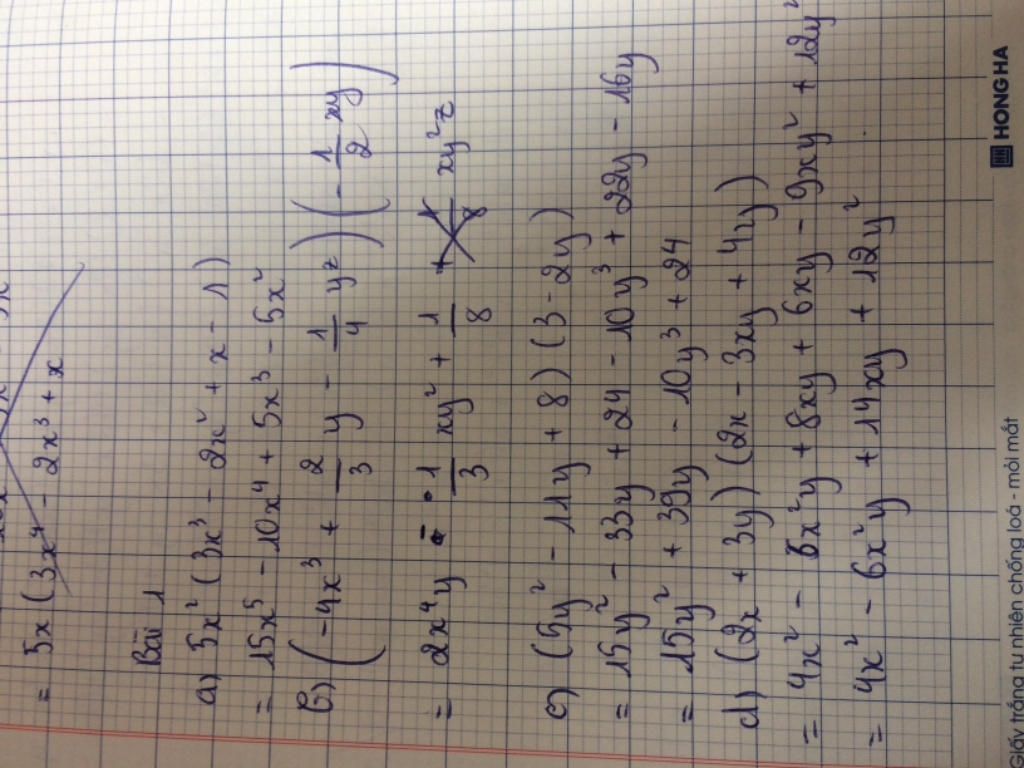 = 5x (3x⁴ - 2x³ + x
Bài 1
a) 5x² (3x³ - 2x² + x - 1)
= 15x⁵ - 10x⁴ + 5x³ - 5x²
b) (-4x³ + 2/3 y - 1/4 yz) (-1/2 xy)
= 2x⁴y - 1/3 xy² + 1/8 xy²z
c) (5y² - 11y + 8) (3 - 2y)
= 15y² - 33y + 24 - 10y³ + 22y - 16y
= 15y² + 39y - 10y³ + 24
d) (2x + 3y) (2x - 3xy + 4y)
= 4x² - 6x²y + 8xy + 6xy - 9xy² + 12y²
= 4x² - 6x²y + 14xy + 12y²
Giấy trắng tự nhiên chống loá - mỏi mắt
HONG HA